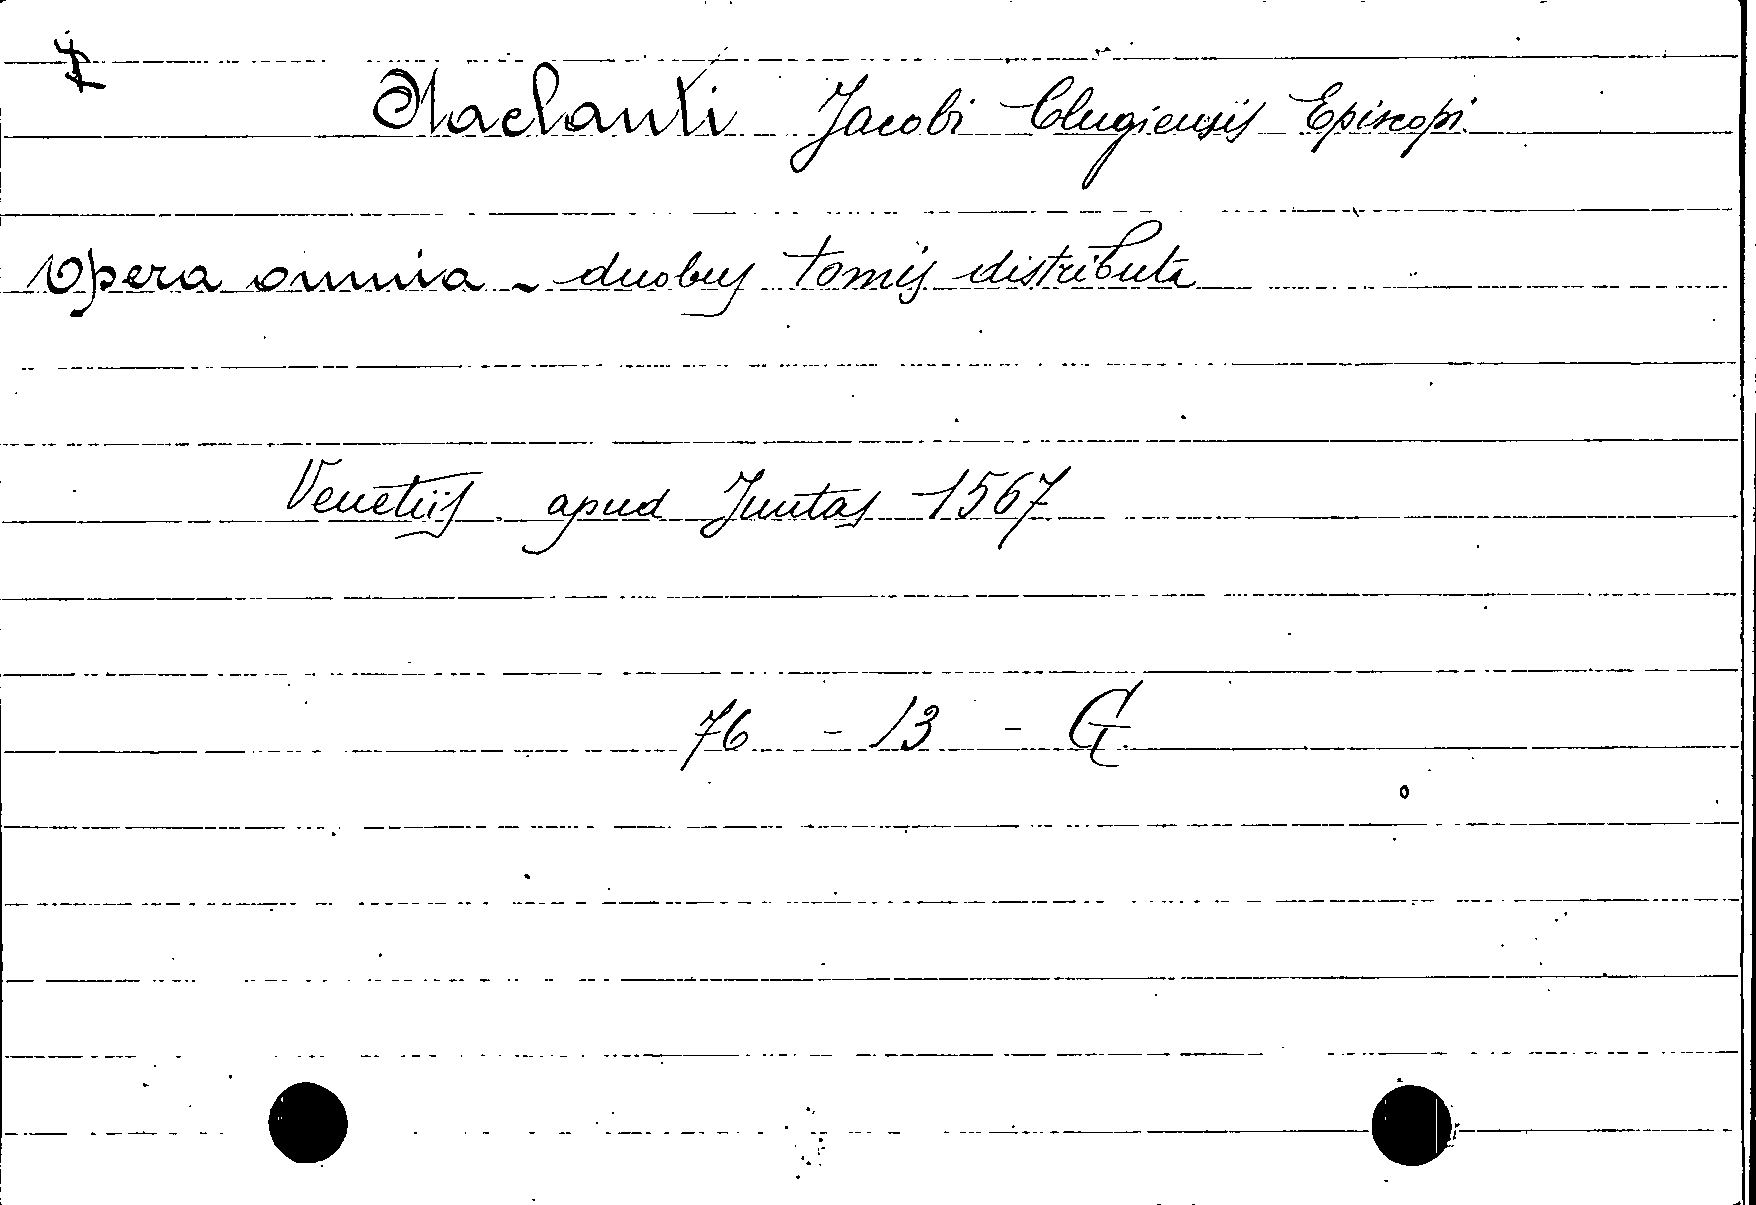 Naclanti Jacobi Clugiensis Episcopi
Opera omnia - duobus tomis distributa
Venetiis apud Juntas 1567
76 - 13 - G